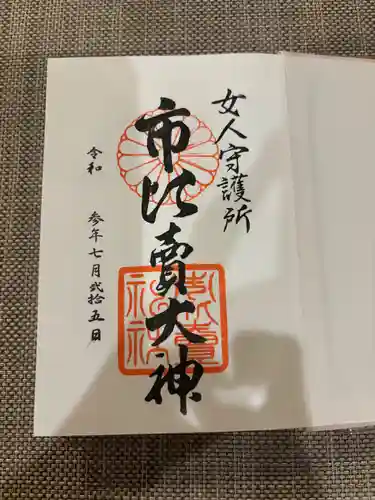 女人守護所
市比賣大神
令和 参年七月弐拾五日